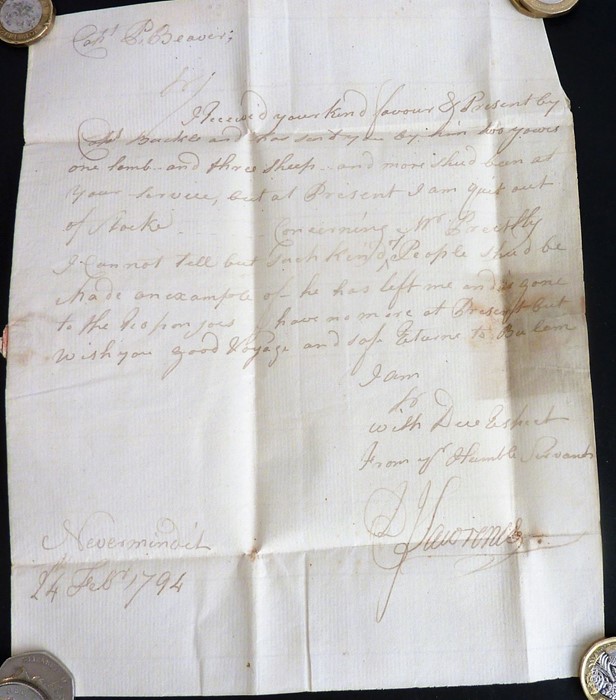 Capt. P. Beaver;
Sr
I Receivd your kind favour & Present by
Capt and has sent you by him two yowes
one lamb and three sheep and more shud been at
your Service, but at Present I am quit out
of Stocke. Concerning Mr. Preestly
I Cannot tell but Such kind of People shud be
Made an example of - he has left me and is gone
to the I have no more at Present but
wish you good Voyage and safe Returns to Bulam
I am
Sr
with Due Respect
From yr Humble Servant
J Lawrence
Nevermindit
24 Febr 1794